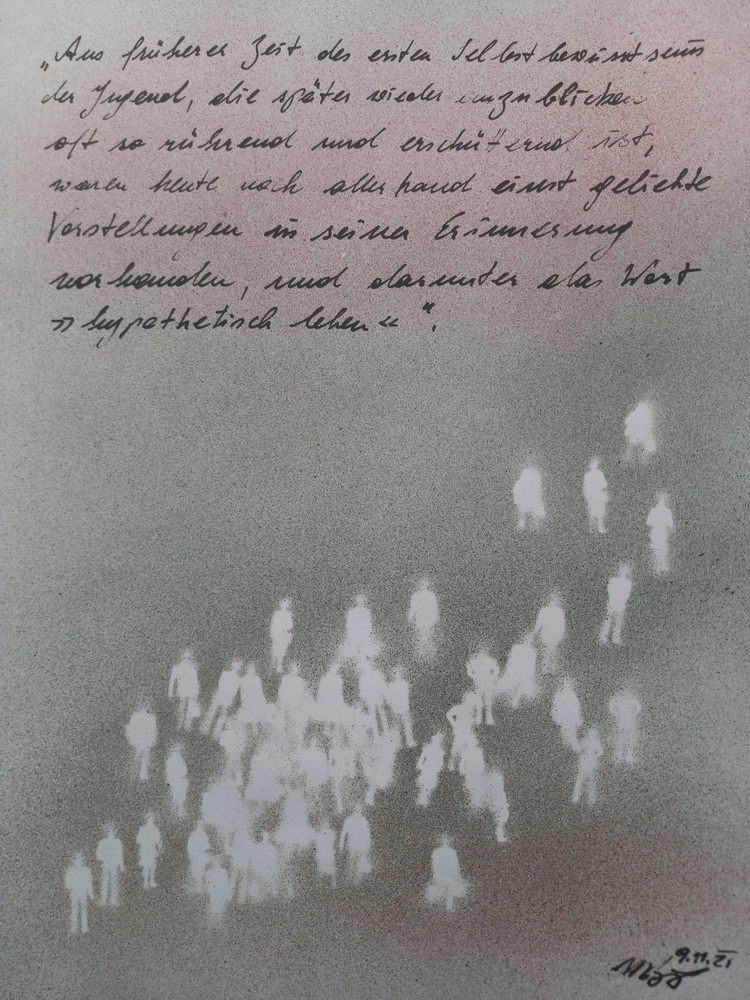 „Aus früherer Zeit des ersten Selbstbewusstseins
der Jugend, die später wieder anzublicken
oft so rührend und erschütternd ist,
waren heute noch allerhand einst geliebte
Vorstellungen in seiner Erinnerung
vorhanden, und darunter das Wort
»hypothetisch leben«“.
9.11.21